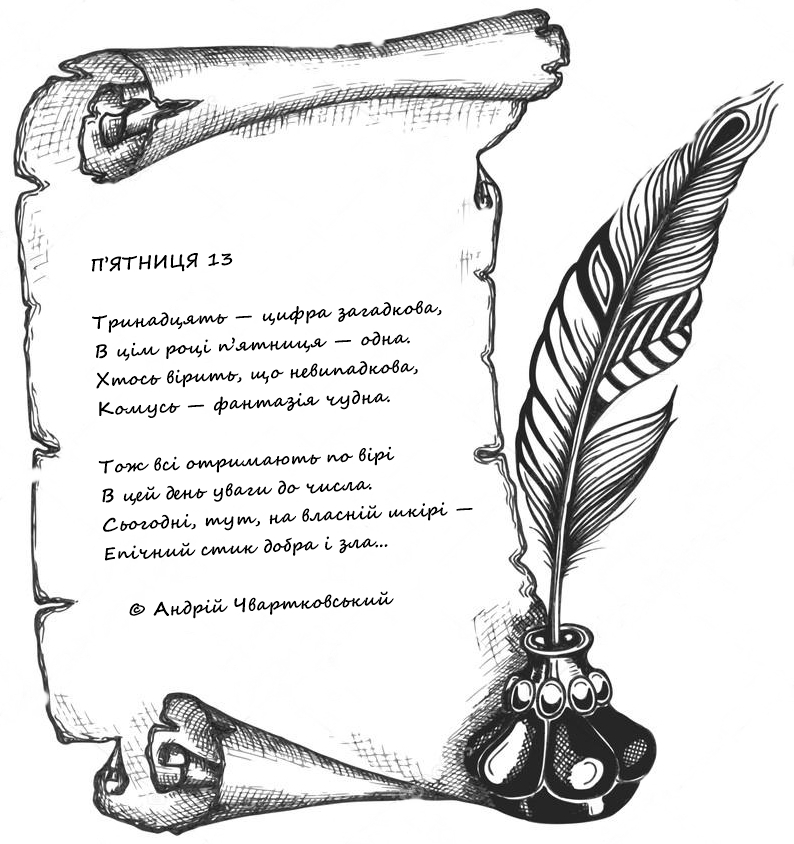 П'ЯТНИЦЯ 13
Тринадцять — цифра загадкова,
В цім році п'ятниця — одна.
Хтось вірить, що невипадкова,
Комусь — фантазія чудна.
Тож всі отримають по вірі
В цей день уваги до числа.
Сьогодні, тут, на власній шкірі —
Епічний стик добра і зла...
© Андрій Чвартковський